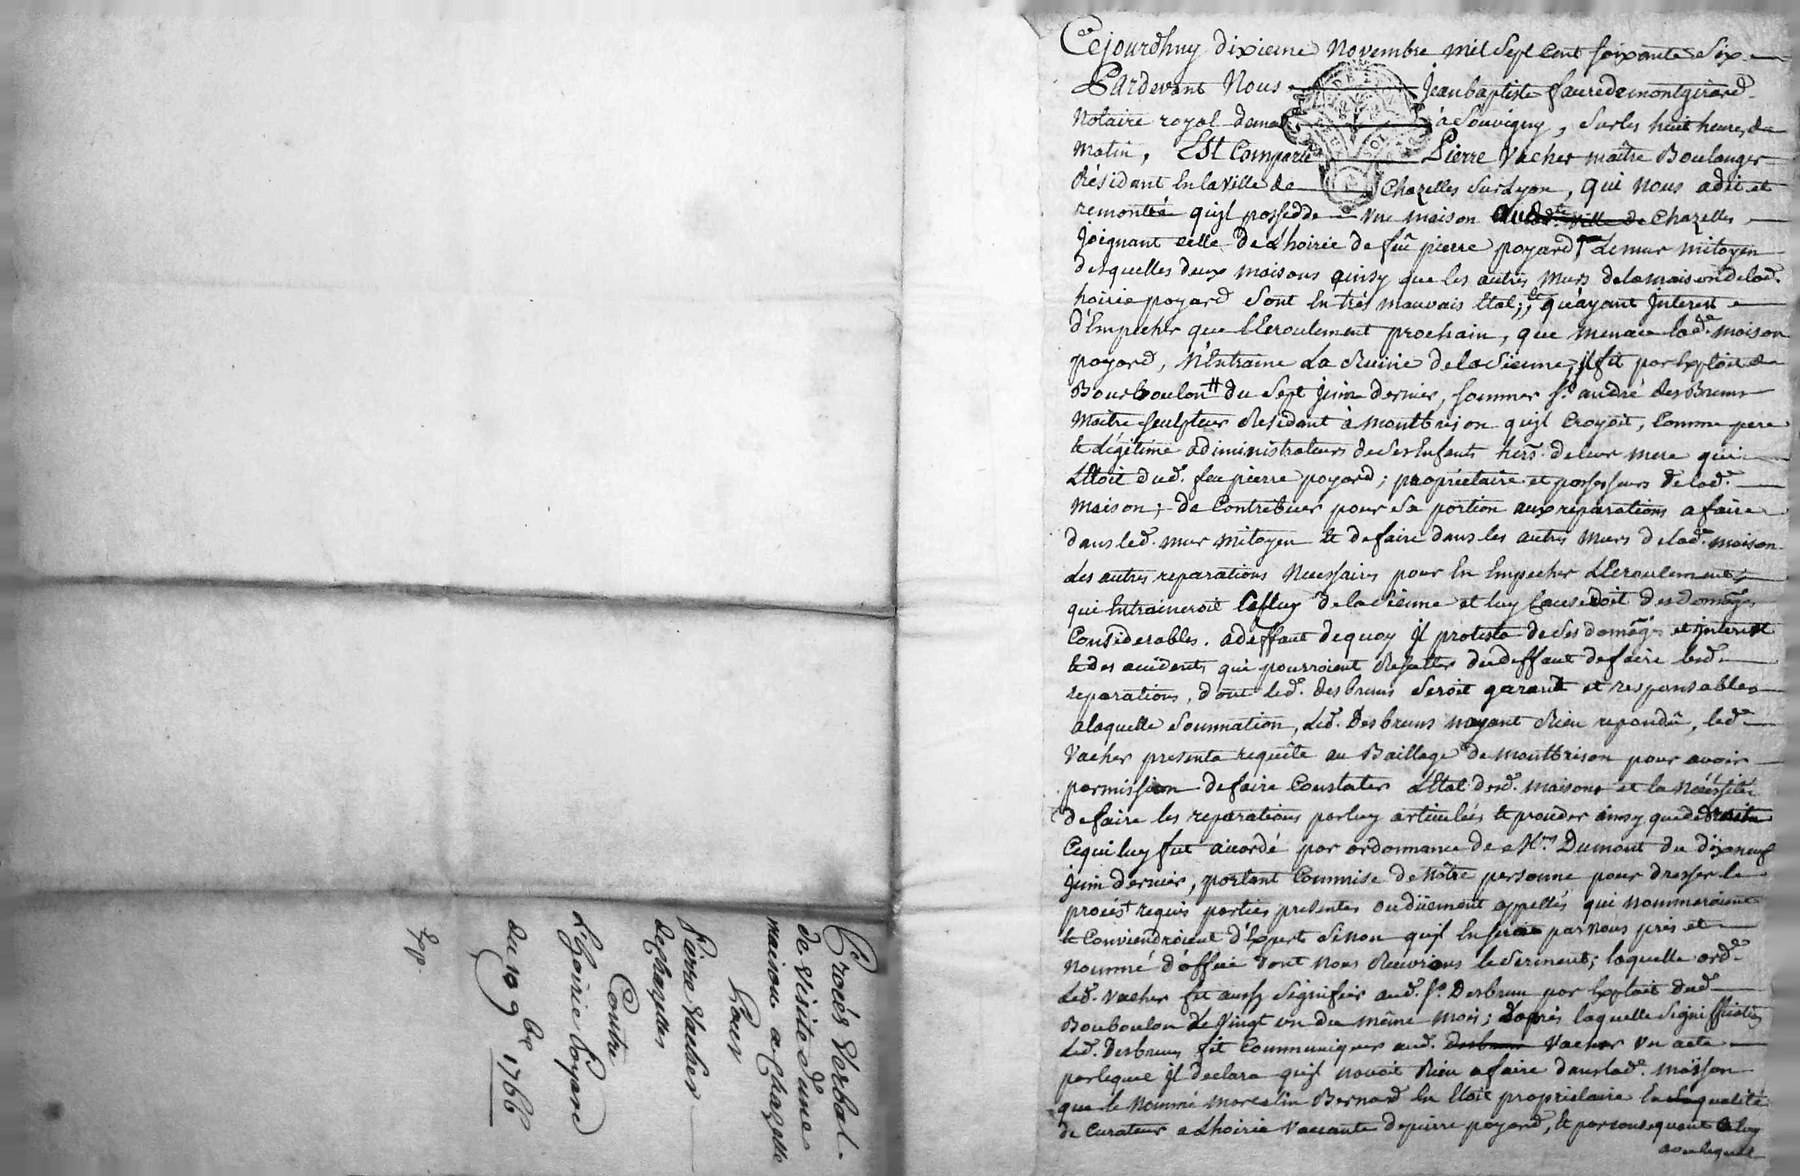 Procès Verbal
de Visite d'une
maison a Chazelle
Pour
Pierre Vacher
de Chazelles
Contre
L'hoirie Poyard
du 10 9bre 1766
Cejourdhuy dixieme Novembre mil Sept Cent Soixante Six
Pardevant Nous Jean baptiste faure de montgirard
Notaire royal demt à Souvigny, Sur les huit heures du
matin, Est Comparu Pierre Vacher maitre Boulanger
Résidant En la Ville de Chazelles Sur Lyon, qui nous a dit et
remontré quil possedde une maison aud. Chazelles
Joignant celle de L'hoirie de feu pierre poyard Le mur mitoyen
desquelles deux maisons ainsy que les autres murs de la maison de lad.
hoirie poyard sont En très mauvais Etat; et qu'ayant Interest
d'Empecher que L'Ecroulement prochain, que menace lade maison
poyard, N'Entraine La Ruine de la Sienne, il fit par Exploit de
Bourboulon du Sept juin dernier, sommer sr andré des Bruns
Maitre Sculpteur Residant à Montbrison quil Croyoit, Comme pere
et Légitime administrateur de Ses Enfants hers de leur mere qui
L'Etoit dud. feu pierre poyard; propriétaire et possesseurs de lad.
Maison; de Contribuer pour Sa portion aux reparations a faire
dans led. mur mitoyen et de faire dans les autres murs de lad. maison
Les autres reparations Necessaires pour En Empecher L'Ecroulement
qui Entraineroit Celluy de la Sienne et luy Causeroit des domages
Considerables. a deffaut de quoy il protesta de Ses domages et interest
et des accidents qui pourroient Resulter du deffaut de faire lesd.
reparations, dont led. des bruns Seroit garant et responsable
a laquelle Sommation, Led. Desbruns n'ayant Rien repondu, led.
Vacher presenta requête au Baillage de Montbrison pour avoir
permission de faire Constater L'Etat desd. maisons et la Nécéssité
de faire les reparations par luy articulées et proceder ainsy que de droit
Ce qui luy fut accordé par ordonnance de Mr Dumont du dixneuf
Juin dernier, portant Commise de Nôtre personne pour dresser le
procès requis parties presentes ou düement appellés qui nommeroient
et Conviendroient d'Experts Sinon quil En seroit par nous pris et
Nommé d'office dont Nous Recevrions le Serment; laquelle ord.
Led. Vacher fit aussy Signifier aud. Sr Desbrun par Exploit dud.
Bourboulon Le Vingt un du même mois; d'après laquelle Signiffication
Led. Desbruns fit Communiquer aud. Vacher Un acte
par lequel il declara quil n'avoit Rien a faire dans lad. maison
que le Nommé Bernard En Etoit proprietaire En qualité
de Curateur a L'hoirie Vaccante de pierre poyard, et par consequent